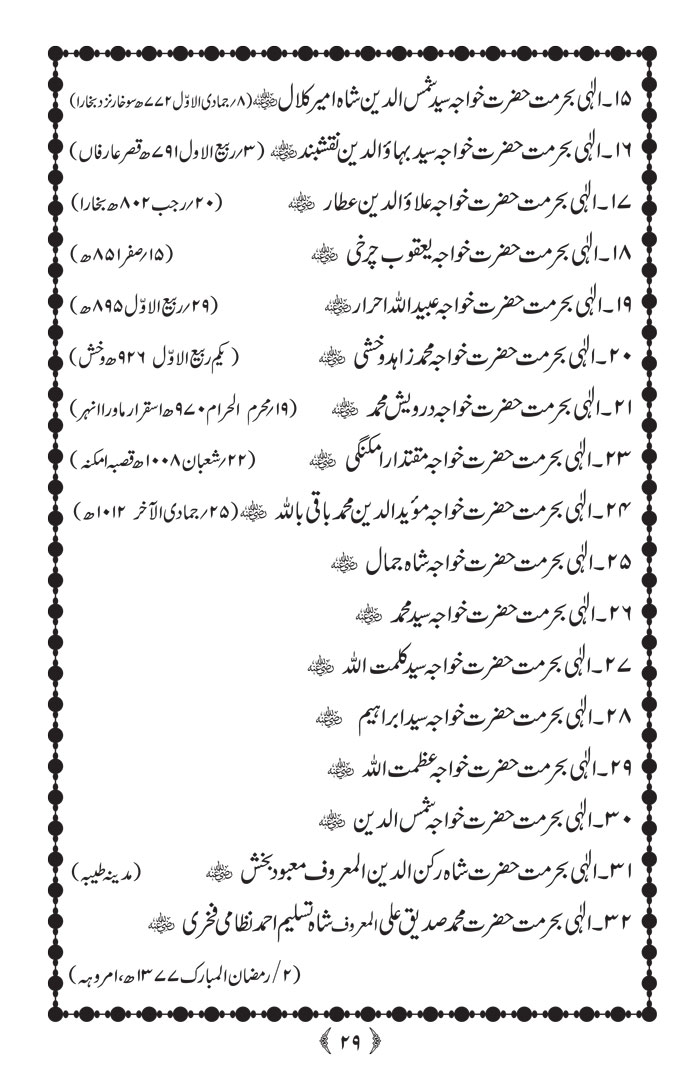 ۱۵۔الٰہی بحرمت حضرت خواجہ سید شمس الدین شاہ امیر کلال رضی اللہ عنہ (۸/جمادی الاوّل ۷۷۲ھ سوخار نزد بخارا)
۱۶۔الٰہی بحرمت حضرت خواجہ سید بہاؤ الدین نقشبند رضی اللہ عنہ (۳/ربیع الاول ۷۹۱ھ قصر عارفاں)
۱۷۔الٰہی بحرمت حضرت خواجہ علاؤ الدین عطار رضی اللہ عنہ (۲۰/رجب ۸۰۲ھ بخارا)
۱۸۔الٰہی بحرمت حضرت خواجہ یعقوب چرخی رضی اللہ عنہ (۱۵/صفر ۸۵۱ھ)
۱۹۔الٰہی بحرمت حضرت خواجہ عبید اللہ احرار رضی اللہ عنہ (۲۹/ربیع الاوّل ۸۹۵ھ)
۲۰۔الٰہی بحرمت حضرت خواجہ محمد زاہد وخشی رضی اللہ عنہ (یکم ربیع الاوّل ۹۲۶ھ وخش)
۲۱۔الٰہی بحرمت حضرت خواجہ درویش محمد رضی اللہ عنہ (۱۹/محرم الحرام ۹۷۰ھ اسقرار ماورا انہر)
۲۳۔الٰہی بحرمت حضرت خواجہ مقتدا امکنگی رضی اللہ عنہ (۲۲/شعبان ۱۰۰۸ھ قصبہ امکنہ)
۲۴۔الٰہی بحرمت حضرت خواجہ مؤید الدین محمد باقی باللہ رضی اللہ عنہ (۲۵/جمادی الآخر ۱۰۱۲ھ)
۲۵۔الٰہی بحرمت حضرت خواجہ شاہ جمال رضی اللہ عنہ
۲۶۔الٰہی بحرمت حضرت خواجہ سید محمد رضی اللہ عنہ
۲۷۔الٰہی بحرمت حضرت خواجہ سید کلمت اللہ رضی اللہ عنہ
۲۸۔الٰہی بحرمت حضرت خواجہ سید ابراہیم رضی اللہ عنہ
۲۹۔الٰہی بحرمت حضرت خواجہ عظمت اللہ رضی اللہ عنہ
۳۰۔الٰہی بحرمت حضرت خواجہ شمس الدین رضی اللہ عنہ
۳۱۔الٰہی بحرمت حضرت شاہ رکن الدین المعروف معبود بخش رضی اللہ عنہ (مدینہ طیبہ)
۳۲۔الٰہی بحرمت حضرت محمد صدیق علی المعروف شاہ تسلیم احمد نظامی فخری رضی اللہ عنہ
(۲/رمضان المبارک ۱۳۷۷ھ، امروہہ)
﴿۲۹﴾